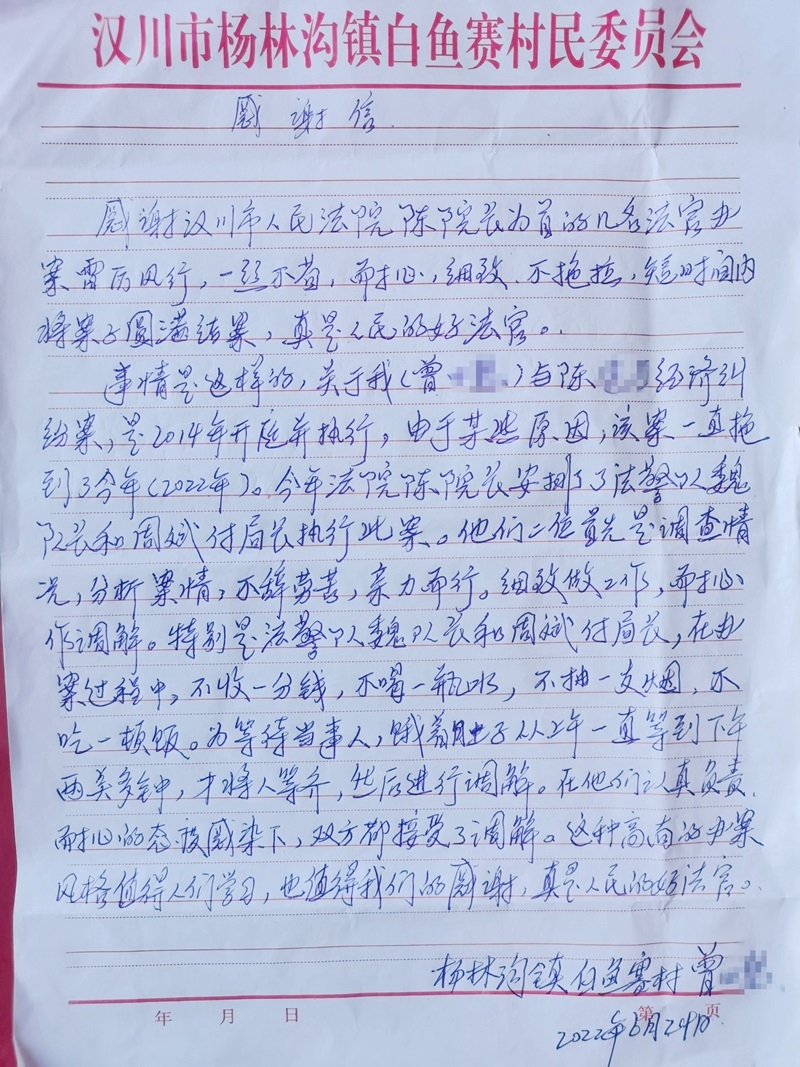 汉川市杨林沟镇白鱼赛村民委员会
感谢信
感谢汉川市人民法院陈院长为首的几名法官办
案雷厉风行，一丝不苟，耐心，细致、不拖拉，短时间内
将案子圆满结案，真是人民的好法官。
事情是这样的，关于我（曾）与陈 经济纠
纷案，是2014年开庭并执行，由于某些原因，该案一直拖
到了今年（2022年）。今年法院陈院长安排了法警队魏
队长和周斌付局长执行此案。他们二位首先是调查情
况，分析案情，不辞劳苦，亲力而行。细致做工作，耐心
作调解。特别是法警队魏队长和周斌付局长，在办
案过程中，不收一分钱，不喝一瓶水，不抽一支烟，不
吃一顿饭。为等待当事人，饿着肚子从上午一直等到下午
两点多钟，才将人等齐，然后进行调解。在他们认真负责
耐心的态度感染下，双方都接受了调解。这种高尚的办案
风格值得人们学习，也值得我们的感谢，真是人民的好法官。
杨林沟镇白鱼赛村 曾
年 月 日 第 页
2022年6月24日